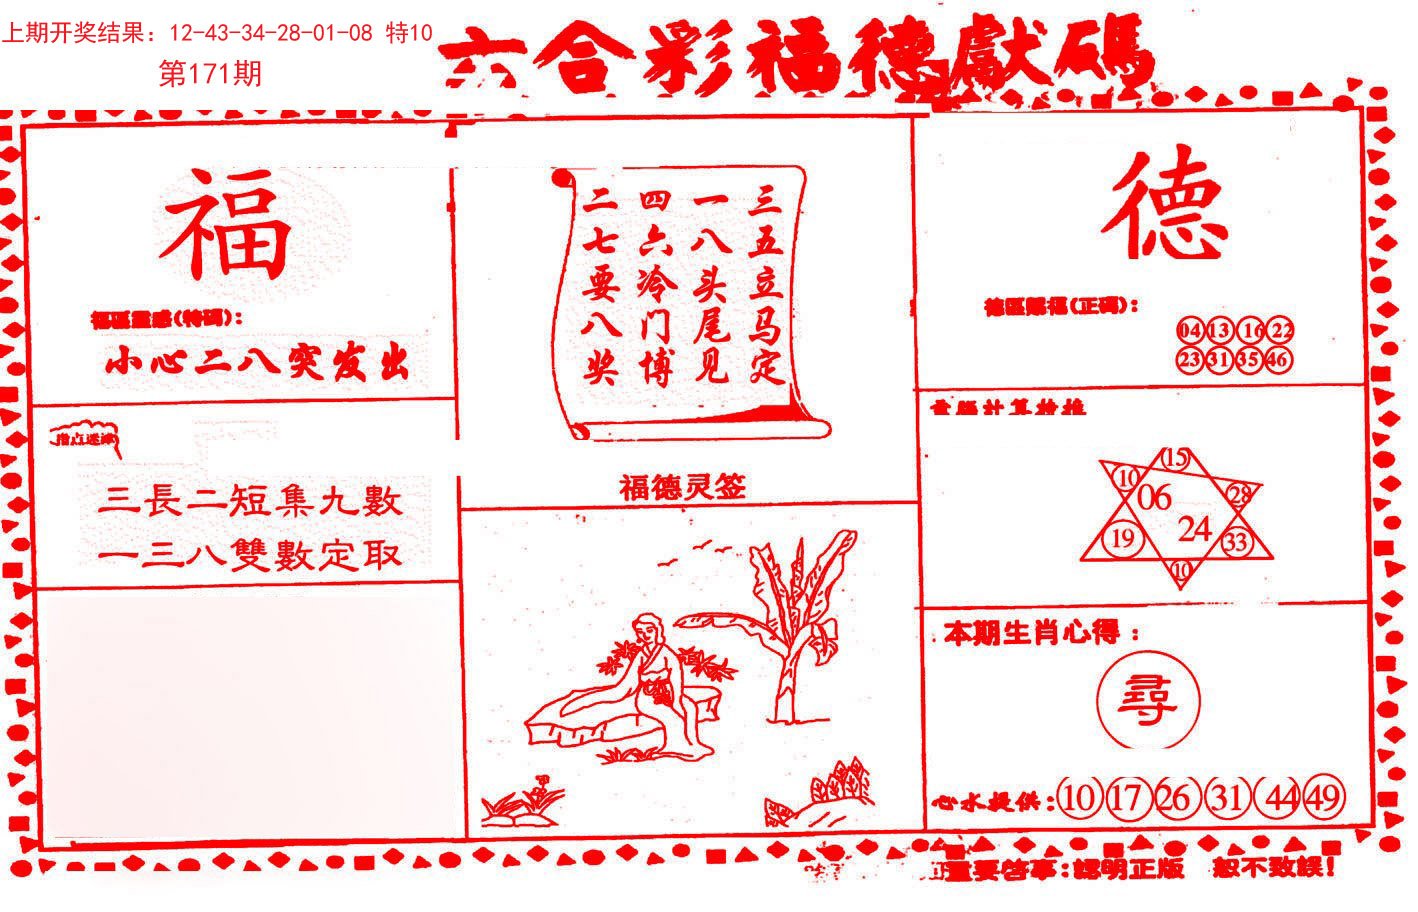 上期开奖结果：12-43-34-28-01-08 特10
第171期
六合彩福德獻碼
福
福區靈感(特碼)：
小心二八突发出
指点迷津
三長二短集九數
一三八雙數定取
三五立马定
一八头尾见
四六冷门博
二七要八奖
福德灵签
德
德區賜福(正碼)：
04 13 16 22
23 31 35 46
15
10 28
06
24
19 33
10
本期生肖心得：
尋
心水提供：10 17 26 31 44 49
重要啓事：認明正版 恕不致誤！